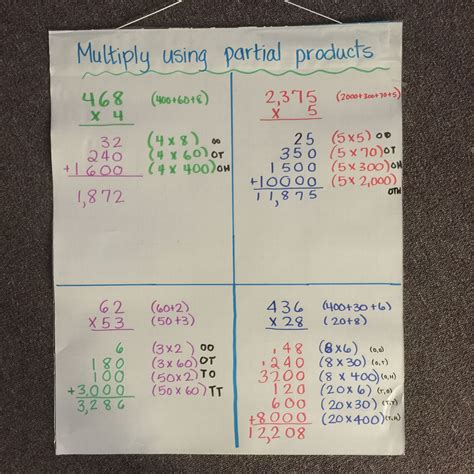 Multiply using partial products
468 (400+60+8)
x 4
32 (4 x 8) OO
240 (4 x 60) OT
+1600 (4 x 400) OH
1,872
2,375 (2000+300+70+5)
x 5
25 (5 x 5) OO
350 (5 x 70) OT
1500 (5 x 300) OH
+10000 (5 x 2,000) OTH
11,875
62 (60+2)
x 53 (50+3)
6 (3 x 2) OO
180 (3 x 60) OT
100 (50 x 2) TO
+3,000 (50 x 60) TT
3,286
436 (400+30+6)
x 28 (20+8)
48 (8 x 6) (O,O)
240 (8 x 30) (O,T)
3200 (8 x 400) (O,H)
120 (20 x 6) (T,O)
600 (20 x 30) (T,T)
+8000 (20 x 400) (T,H)
12,208